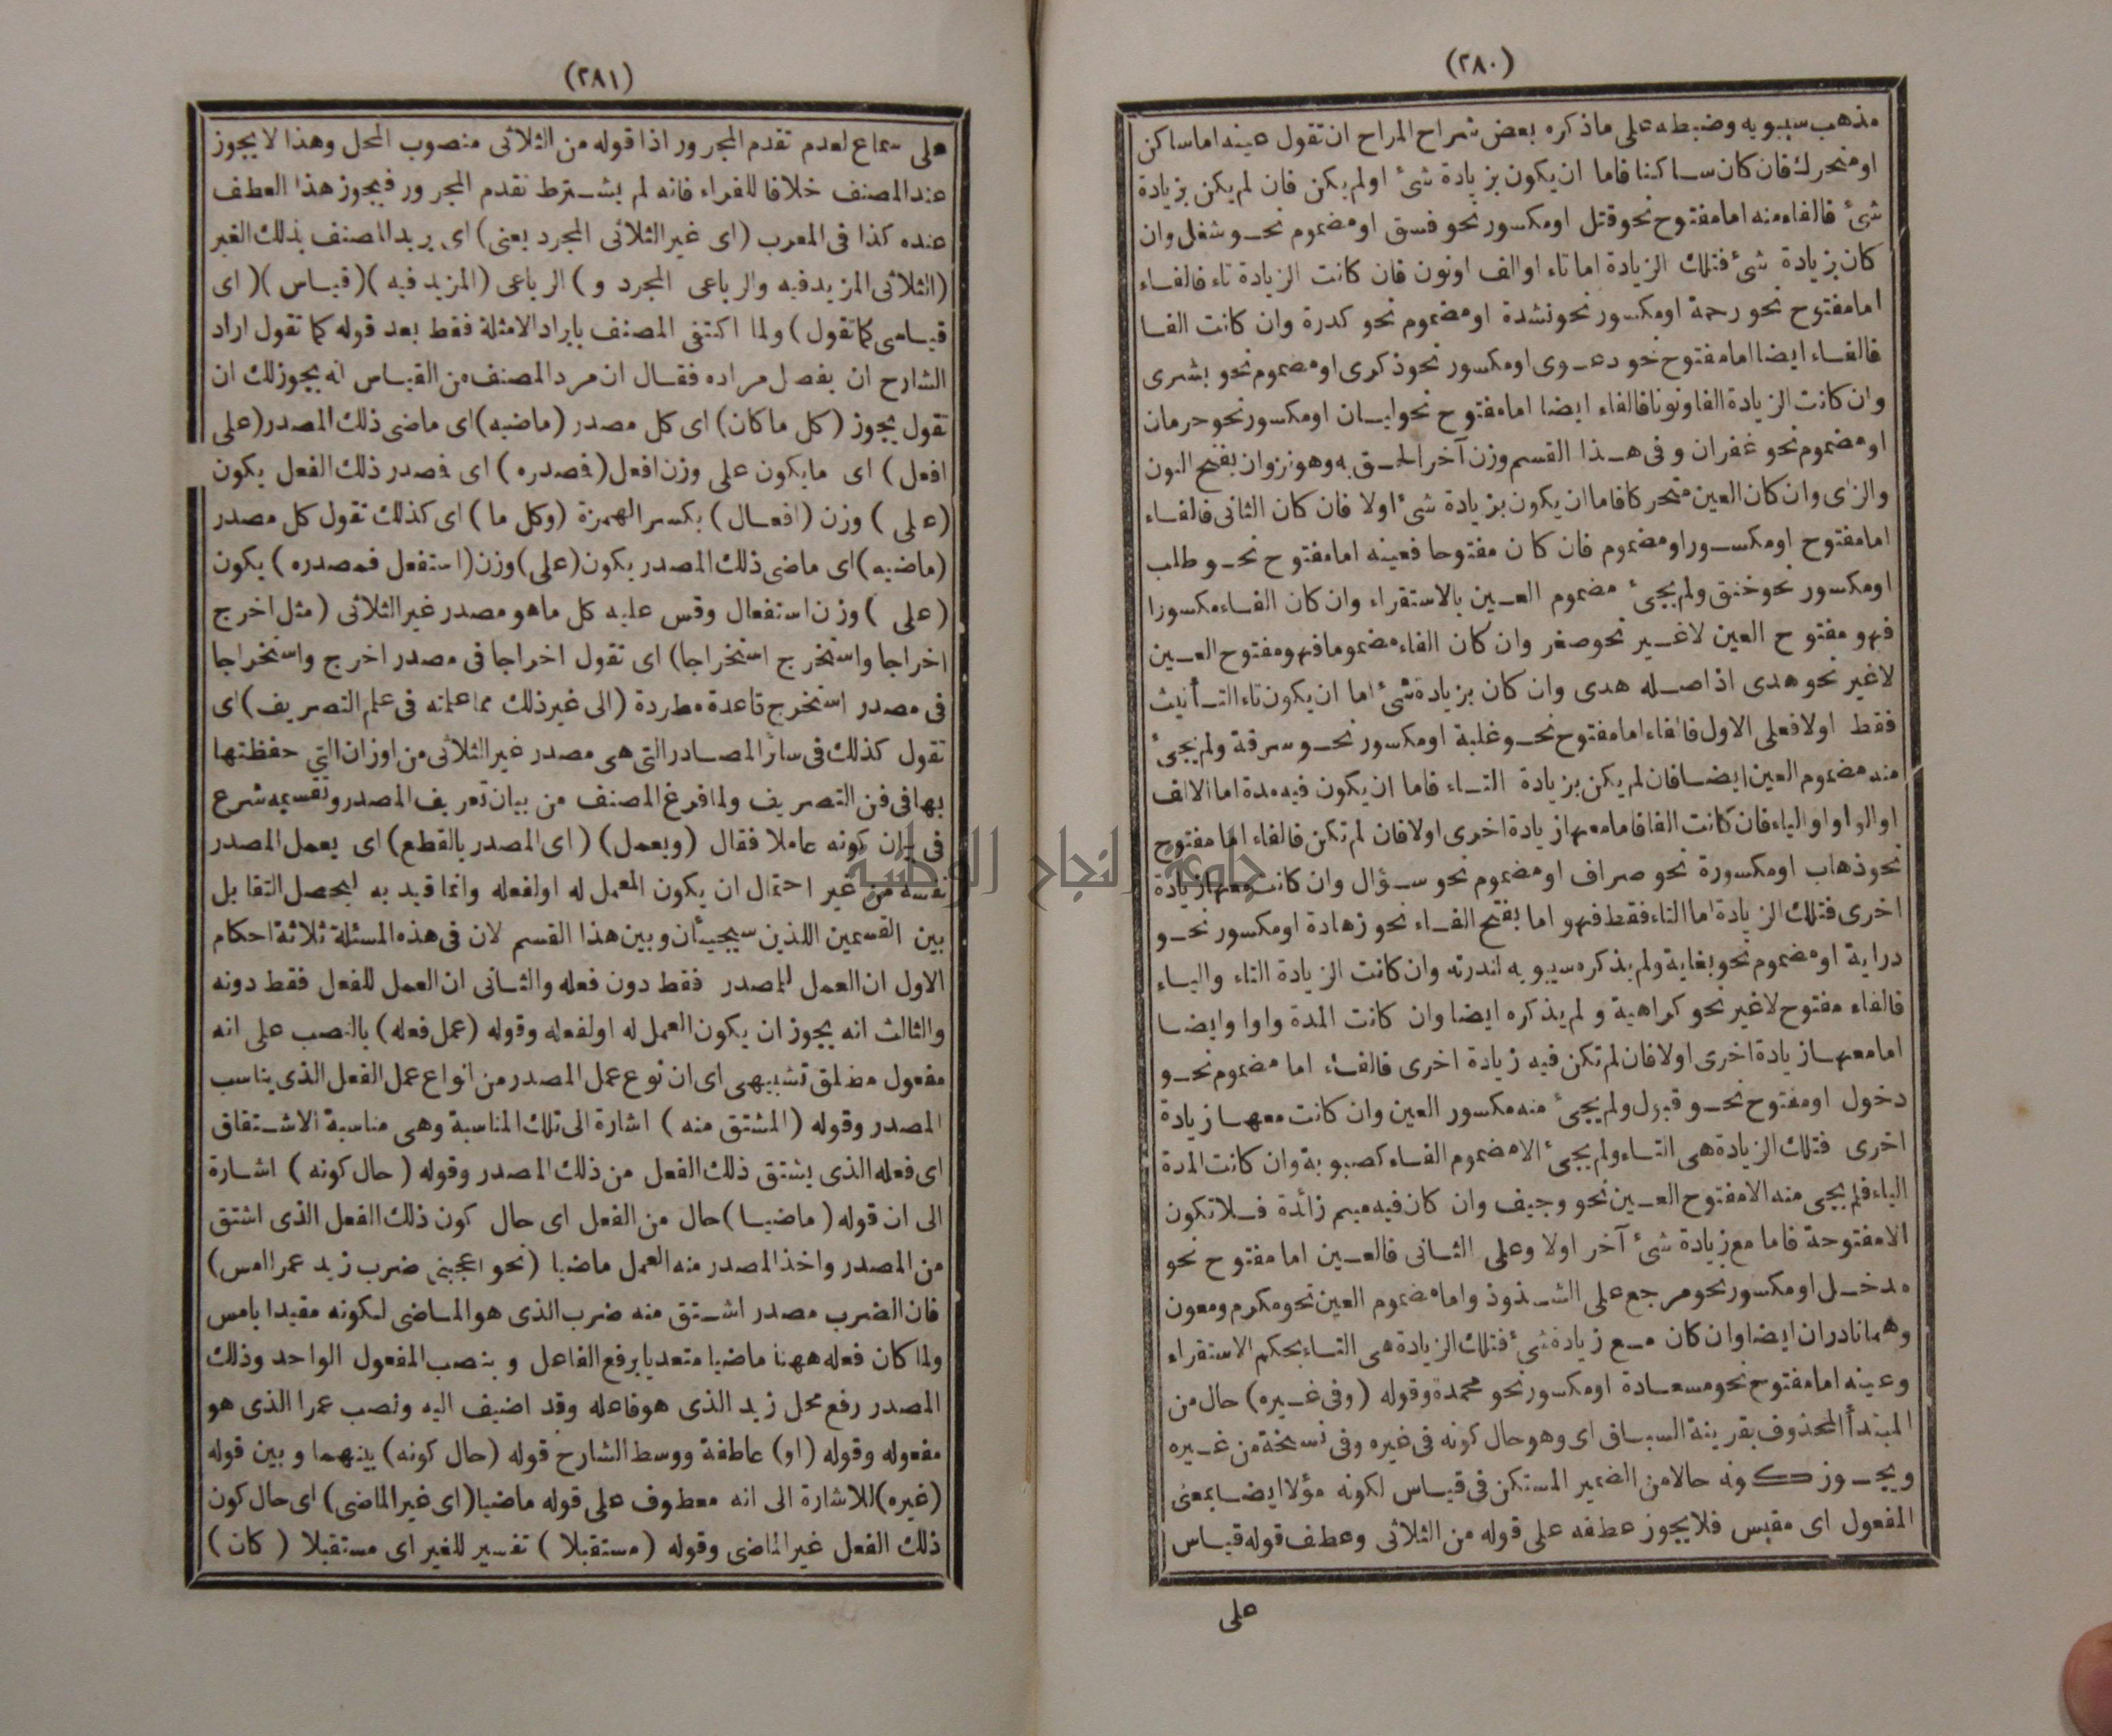 (٢٨٠)
مذهب سيبويه وضبطه على ماذكره بعض شراح المراح ان تقول عينه اما ساكن
او متحرك فان كان ساكنا فاما ان يكون بزيادة شئ اولم يكن فان لم يكن بزيادة
شئ فالفاء منه اما مفتوح نحو قتل او مكسور نحو فسق او مضموم نحو شغل وان
كان بزيادة شئ فتلك الزيادة اما تاء او الف او نون فان كانت الزيادة تاء فالفاء
اما مفتوح نحو رحمة او مكسور نحو نشدة او مضموم نحو كدرة وان كانت الفا
فالفاء ايضا اما مفتوح نحو دعوى او مكسور نحو ذكرى او مضموم نحو بشرى
وان كانت الزيادة الفا ونونا فالفاء ايضا اما مفتوح نحو ليان او مكسور نحو حرمان
او مضموم نحو غفران وفى هذا القسم وزن آخر الحق به وهو نزوان بفتح النون
والزاى وان كان العين متحركا فاما ان يكون بزيادة شئ اولا فان كان الثانى فالفاء
اما مفتوح او مكسور او مضموم فان كان مفتوحا فعينه اما مفتوح نحو طلب
او مكسور نحو خنق ولم يجئ مضموم العين بالاستقراء وان كان الفاء مكسورا
فهو مفتوح العين لاغير نحو صغر وان كان الفاء مضموما فهو مفتوح العين
لاغير نحو هدى اذ اصله هدى وان كان بزيادة شئ اما ان يكون تاء التأنيث
فقط اولا فعلى الاول فالفاء اما مفتوح نحو غلبة او مكسور نحو سرقة ولم يجئ
منه مضموم العين ايضا فان لم يكن بزيادة التاء فاما ان يكون فيه مدة اما الالف
او الواو او الياء فان كانت الفا فاما معها زيادة اخرى اولا فان لم تكن فالفاء اما مفتوح
نحو ذهاب او مكسورة نحو صراف او مضموم نحو سؤال وان كانت معها زيادة
اخرى فتلك الزيادة اما التاء فقط فهو اما بفتح الفاء نحو زهادة او مكسور نحو
دراية او مضموم نحو بغاية ولم يذكره سيبويه لندرته وان كانت الزيادة التاء والياء
فالفاء مفتوح لاغير نحو كراهية ولم يذكره ايضا وان كانت المدة واوا وايضا
اما معها زيادة اخرى اولا فان لم تكن فيه زيادة اخرى فالفاء اما مضموم نحو
دخول او مفتوح نحو قبول ولم يجئ منه مكسور العين وان كانت معها زيادة
اخرى فتلك الزيادة هى التاء ولم يجئ الا مضموم الفاء كصهوبة وان كانت المدة
الياء فلم يجئ منه الا مفتوح العين نحو وجيف وان كان فيه ميم زائدة فلا تكون
الا مفتوحة فاما مع زيادة شئ آخر اولا وعلى الثانى فالعين اما مفتوح نحو
مدخل او مكسور نحو مرجع على الشذوذ واما مضموم العين نحو مكرم ومعون
وهما نادران ايضا وان كان مع زيادة شئ فتلك الزيادة هى التاء بحكم الاستقراء
وعينه اما مفتوح نحو مسعادة او مكسور نحو محمدة وقوله (وفى غيره) حال من
المبتدأ المحذوف بقرينة السباق اى وهو حال كونه فى غيره وفى نسخة من غيره
ويجوز كونه حالا من الضمير المستكن فى قياس لكونه مؤلا ايضا بمعنى
المفعول اى مقيس فلا يجوز عطفه على قوله من الثلاثى وعطف قوله قياس
على
(٢٨١)
على سماع لعدم تقدم المجرور اذا قوله من الثلاثى منصوب المحل وهذا لا يجوز
عند المصنف خلافا للفراء فانه لم يشترط تقدم المجرور فيجوز هذا العطف
عنده كذا فى المعرب (اى غير الثلاثى المجرد يعنى) اى يريد المصنف بذلك الغير
(الثلاثى المزيد فيه والرباعى المجرد و) الرباعى (المزيد فيه) (قياس) (اى
قياسى كما تقول) ولما اكتفى المصنف بايراد الامثلة فقط بعد قوله كما تقول اراد
الشارح ان يفصل مراده فقال ان مرد المصنف من القياس انه يجوز لك ان
تقول يجوز (كل ما كان) اى كل مصدر (ماضيه) اى ماضى ذلك المصدر (على
افعل) اى مايكون على وزن افعل (فصدره) اى فصدر ذلك الفعل يكون
(على) وزن (افعال) بكسر الهمزة (وكل ما) اى كذلك تقول كل مصدر
(ماضيه) اى ماضى ذلك المصدر يكون (على) وزن (استفعل فمصدره) يكون
(على) وزن استفعال وقس عليه كل ماهو مصدر غير الثلاثى (مثل اخرج
اخراجا واستخرج استخراجا) اى تقول اخراجا فى مصدر اخرج واستخراجا
فى مصدر استخرج قاعدة مطردة (الى غير ذلك مما علمته فى علم التصريف) اى
تقول كذلك فى سائر المصادر التى هى مصدر غير الثلاثى من اوزان التى حفظتها
بها فى فن التصريف ولما فرغ المصنف من بيان تعريف المصدر وتقسيمه شرع
فى بيان كونه عاملا فقال (ويعمل) (اى المصدر بالقطع) اى يعمل المصدر
نفسه من غير احتمال ان يكون العمل له او لفعله وانما قيد به ليحصل التقابل
بين القسمين اللذين سيجيأن وبين هذا القسم لان فى هذه المسئلة ثلاثة احكام
الاول ان العمل للمصدر فقط دون فعله والثانى ان العمل للفعل فقط دونه
والثالث انه يجوز ان يكون العمل له او لفعله وقوله (عمل فعله) بالنصب على انه
مفعول مطلق تشبيهى اى ان نوع عمل المصدر من انواع عمل الفعل الذى يناسب
المصدر وقوله (المشتق منه) اشارة الى تلك المناسبة وهى مناسبة الاشتقاق
اى فعله الذى يشتق ذلك الفعل من ذلك المصدر وقوله (حال كونه) اشارة
الى ان قوله (ماضيا) حال من الفعل اى حال كون ذلك الفعل الذى اشتق
من المصدر واخذ المصدر منه العمل ماضيا (نحو اعجبنى ضرب زيد عمرا امس)
فان الضرب مصدر اشتق منه ضرب الذى هو الماضى لكونه مقيدا بامس
ولما كان فعله ههنا ماضيا متعديا يرفع الفاعل وينصب المفعول الواحد وذلك
المصدر رفع محل زيد الذى هو فاعله وقد اضيف اليه ونصب عمرا الذى هو
مفعوله وقوله (او) عاطفة ووسط الشارح قوله (حال كونه) بينهما وبين قوله
(غيره) للاشارة الى انه معطوف على قوله ماضيا (اى غير الماضى) اى حال كون
ذلك الفعل غير الماضى وقوله (مستقبلا) تفسير للغير اى مستقبلا (كان)
جامعة النجاح الوطنية